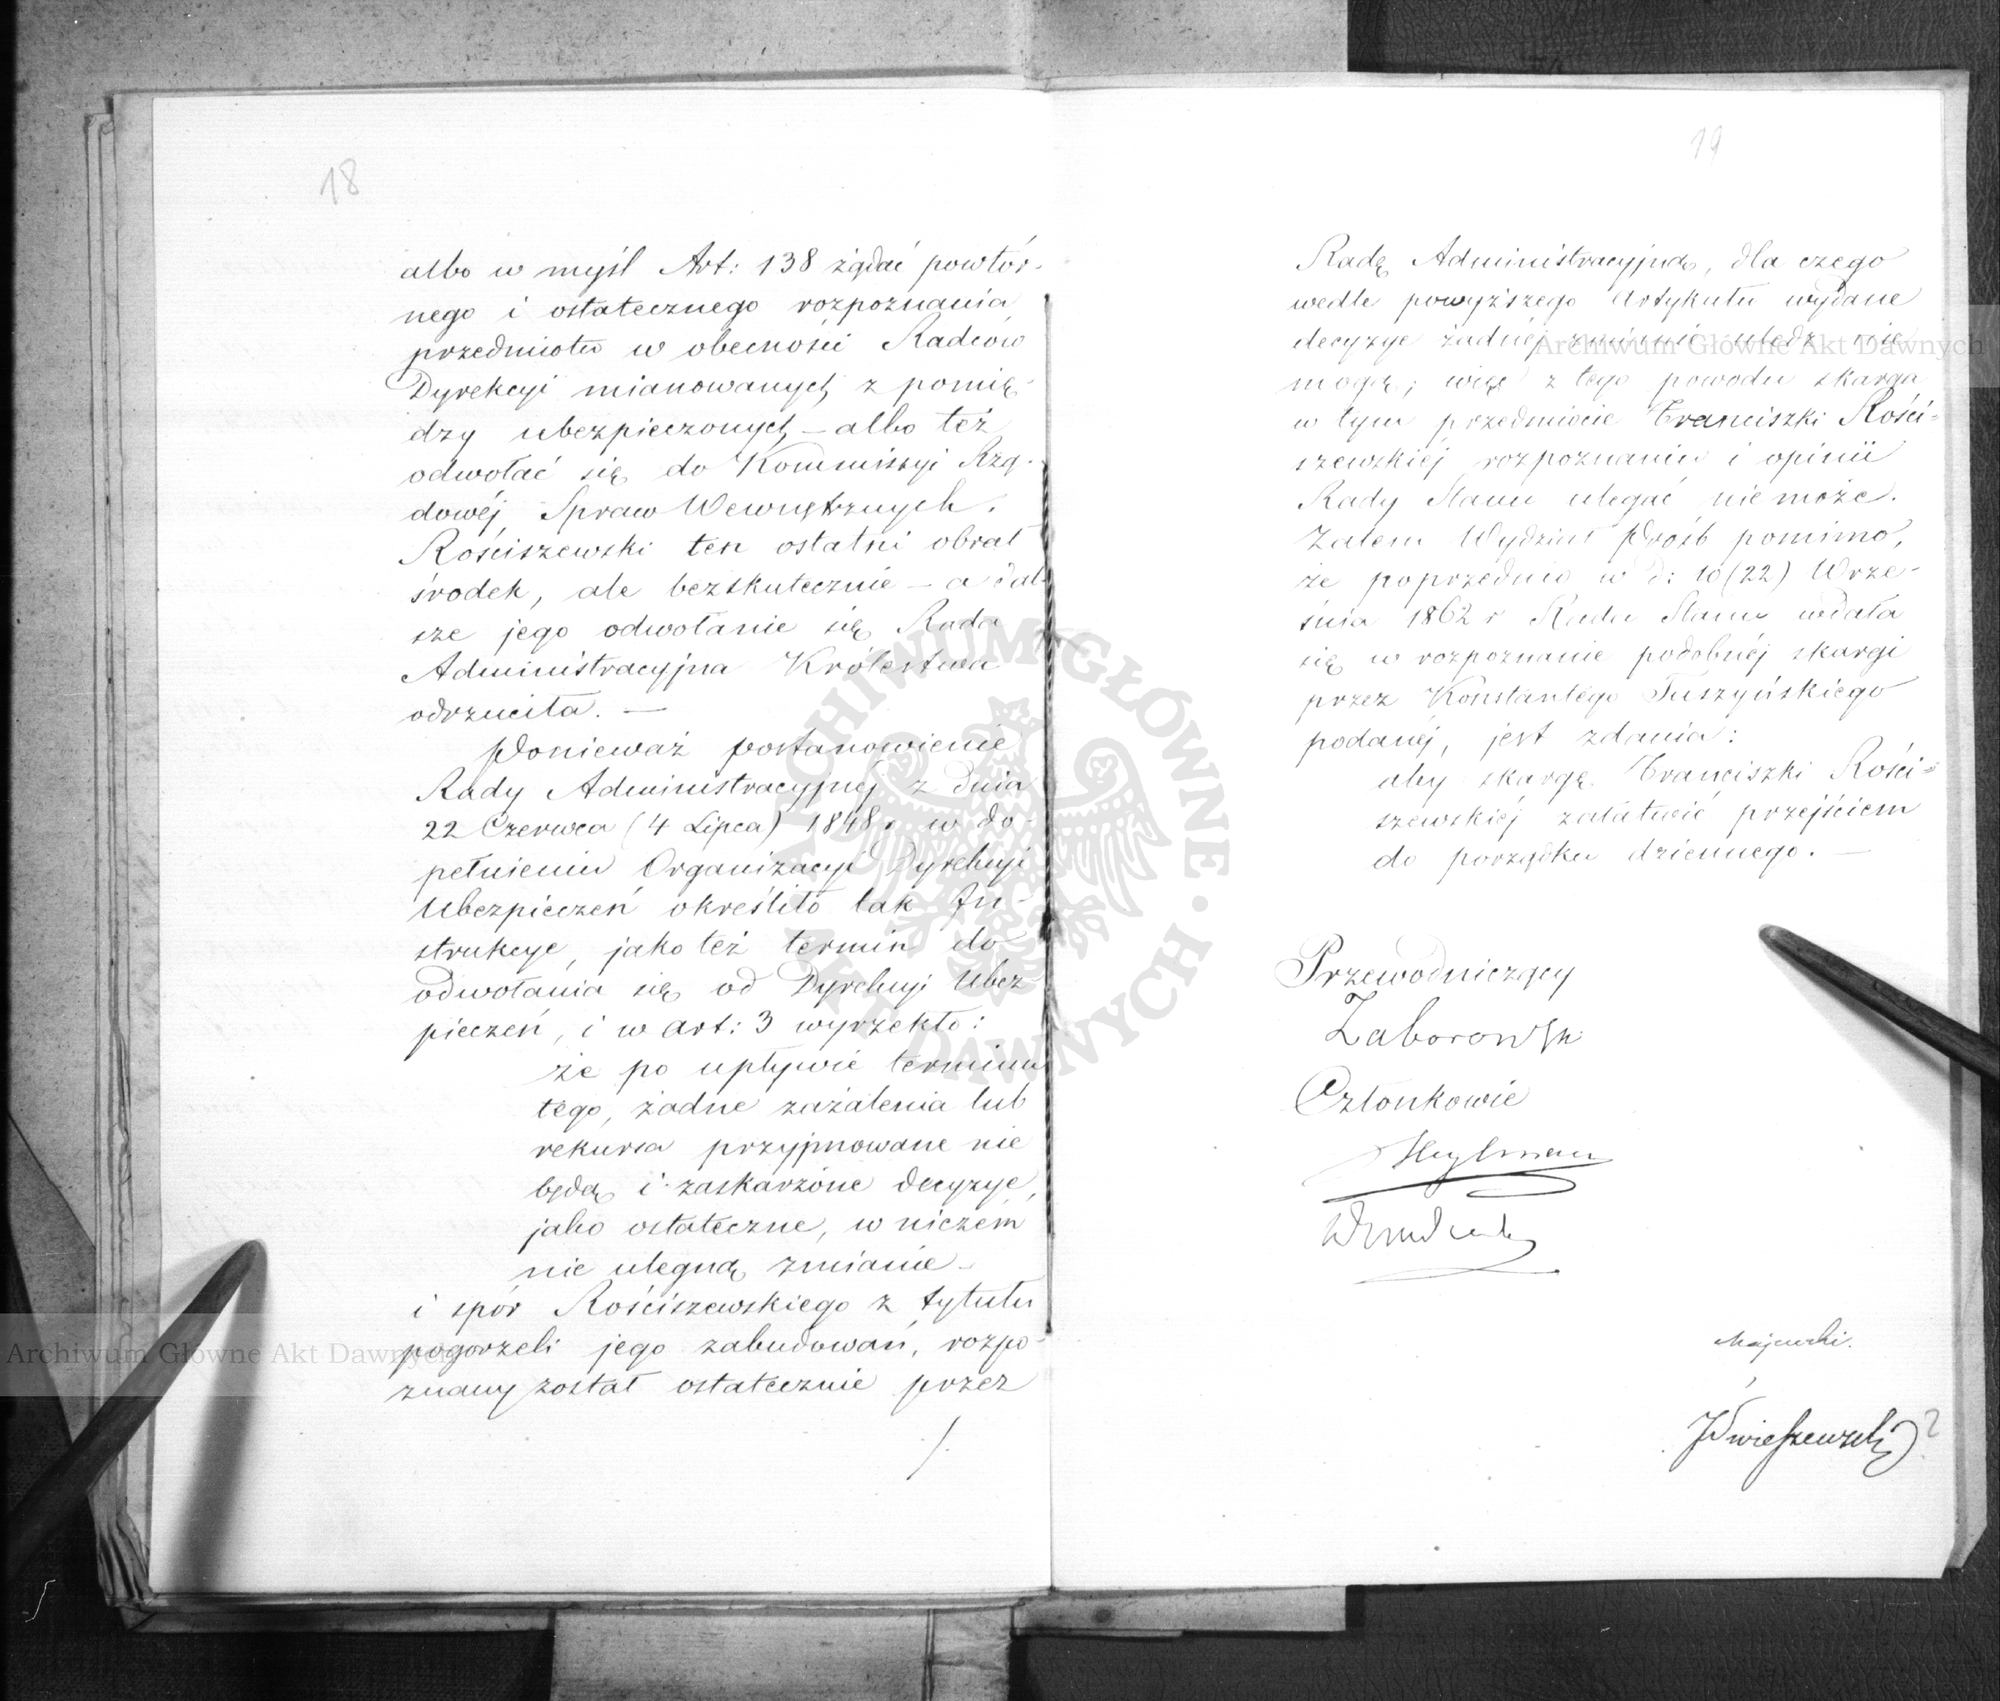 18
albo w myśl Art: 138 żądać powtór-
nego i ostatecznego rozpoznania
przedmiotu w obecności Radców
Dyrekcyi mianowanych z pomię-
dzy ubezpieczonych – albo też
odwołać się do Kommissyi Rzą-
dowéj Spraw Wewnętrznych.
Rościszewski ten ostatni obrał
środek, ale bezskutecznie – a dal-
sze jego odwołanie się Rada
Administracyjna Królestwa
odrzuciła. –
Ponieważ postanowienie
Rady Administracyjnéj z dnia
22 Czerwca (4 Lipca) 1848 r w do-
pełnieniu Organizacyi Dyrekcyi
Ubezpieczeń określiło tak In-
strukcye, jako też termin do
odwołania się od Dyrekcyi Ubez-
pieczeń, i w art: 3 wyrzekło:
że po upływie terminu
tego, żadne zażalenia lub
rekursa przyjmowane nie
będą i zaskarżone decyzye,
jako ostateczne, w niczem
nie ulegną zmianie –
i spór Rościszewskiego z tytułu
pogorzeli jego zabudowań, rozpo-
znany został ostatecznie przez
/.
19
Radę Administracyjną, dla czego
wedle powyższego Artykułu wydane
decyzye żadnéj zmianie uledz nie
mogą; więc z tego powodu skarga
w tym przedmiocie Franciszki Rości-
szewskiéj rozpoznaniu i opinii
Rady Stanu ulegać nie może.
Zatem Wydział Próśb pomimo,
że poprzednio w d: 10 (22) Wrze-
śnia 1862 r Rada Stanu wdała
się w rozpoznanie podobnéj skargi
przez Konstantego Tuszyńskiego
podanéj, jest zdania:
aby skargę Franciszki Rości-
szewskiéj załatwić przejściem
do porządku dziennego. –
Przewodniczący
Zaborowski
Członkowie
Heylman
Majewski.
Archiwum Główne Akt Dawnych
Archiwum Główne Akt Dawnych
ARCHIWUM GŁÓWNE AKT DAWNYCH